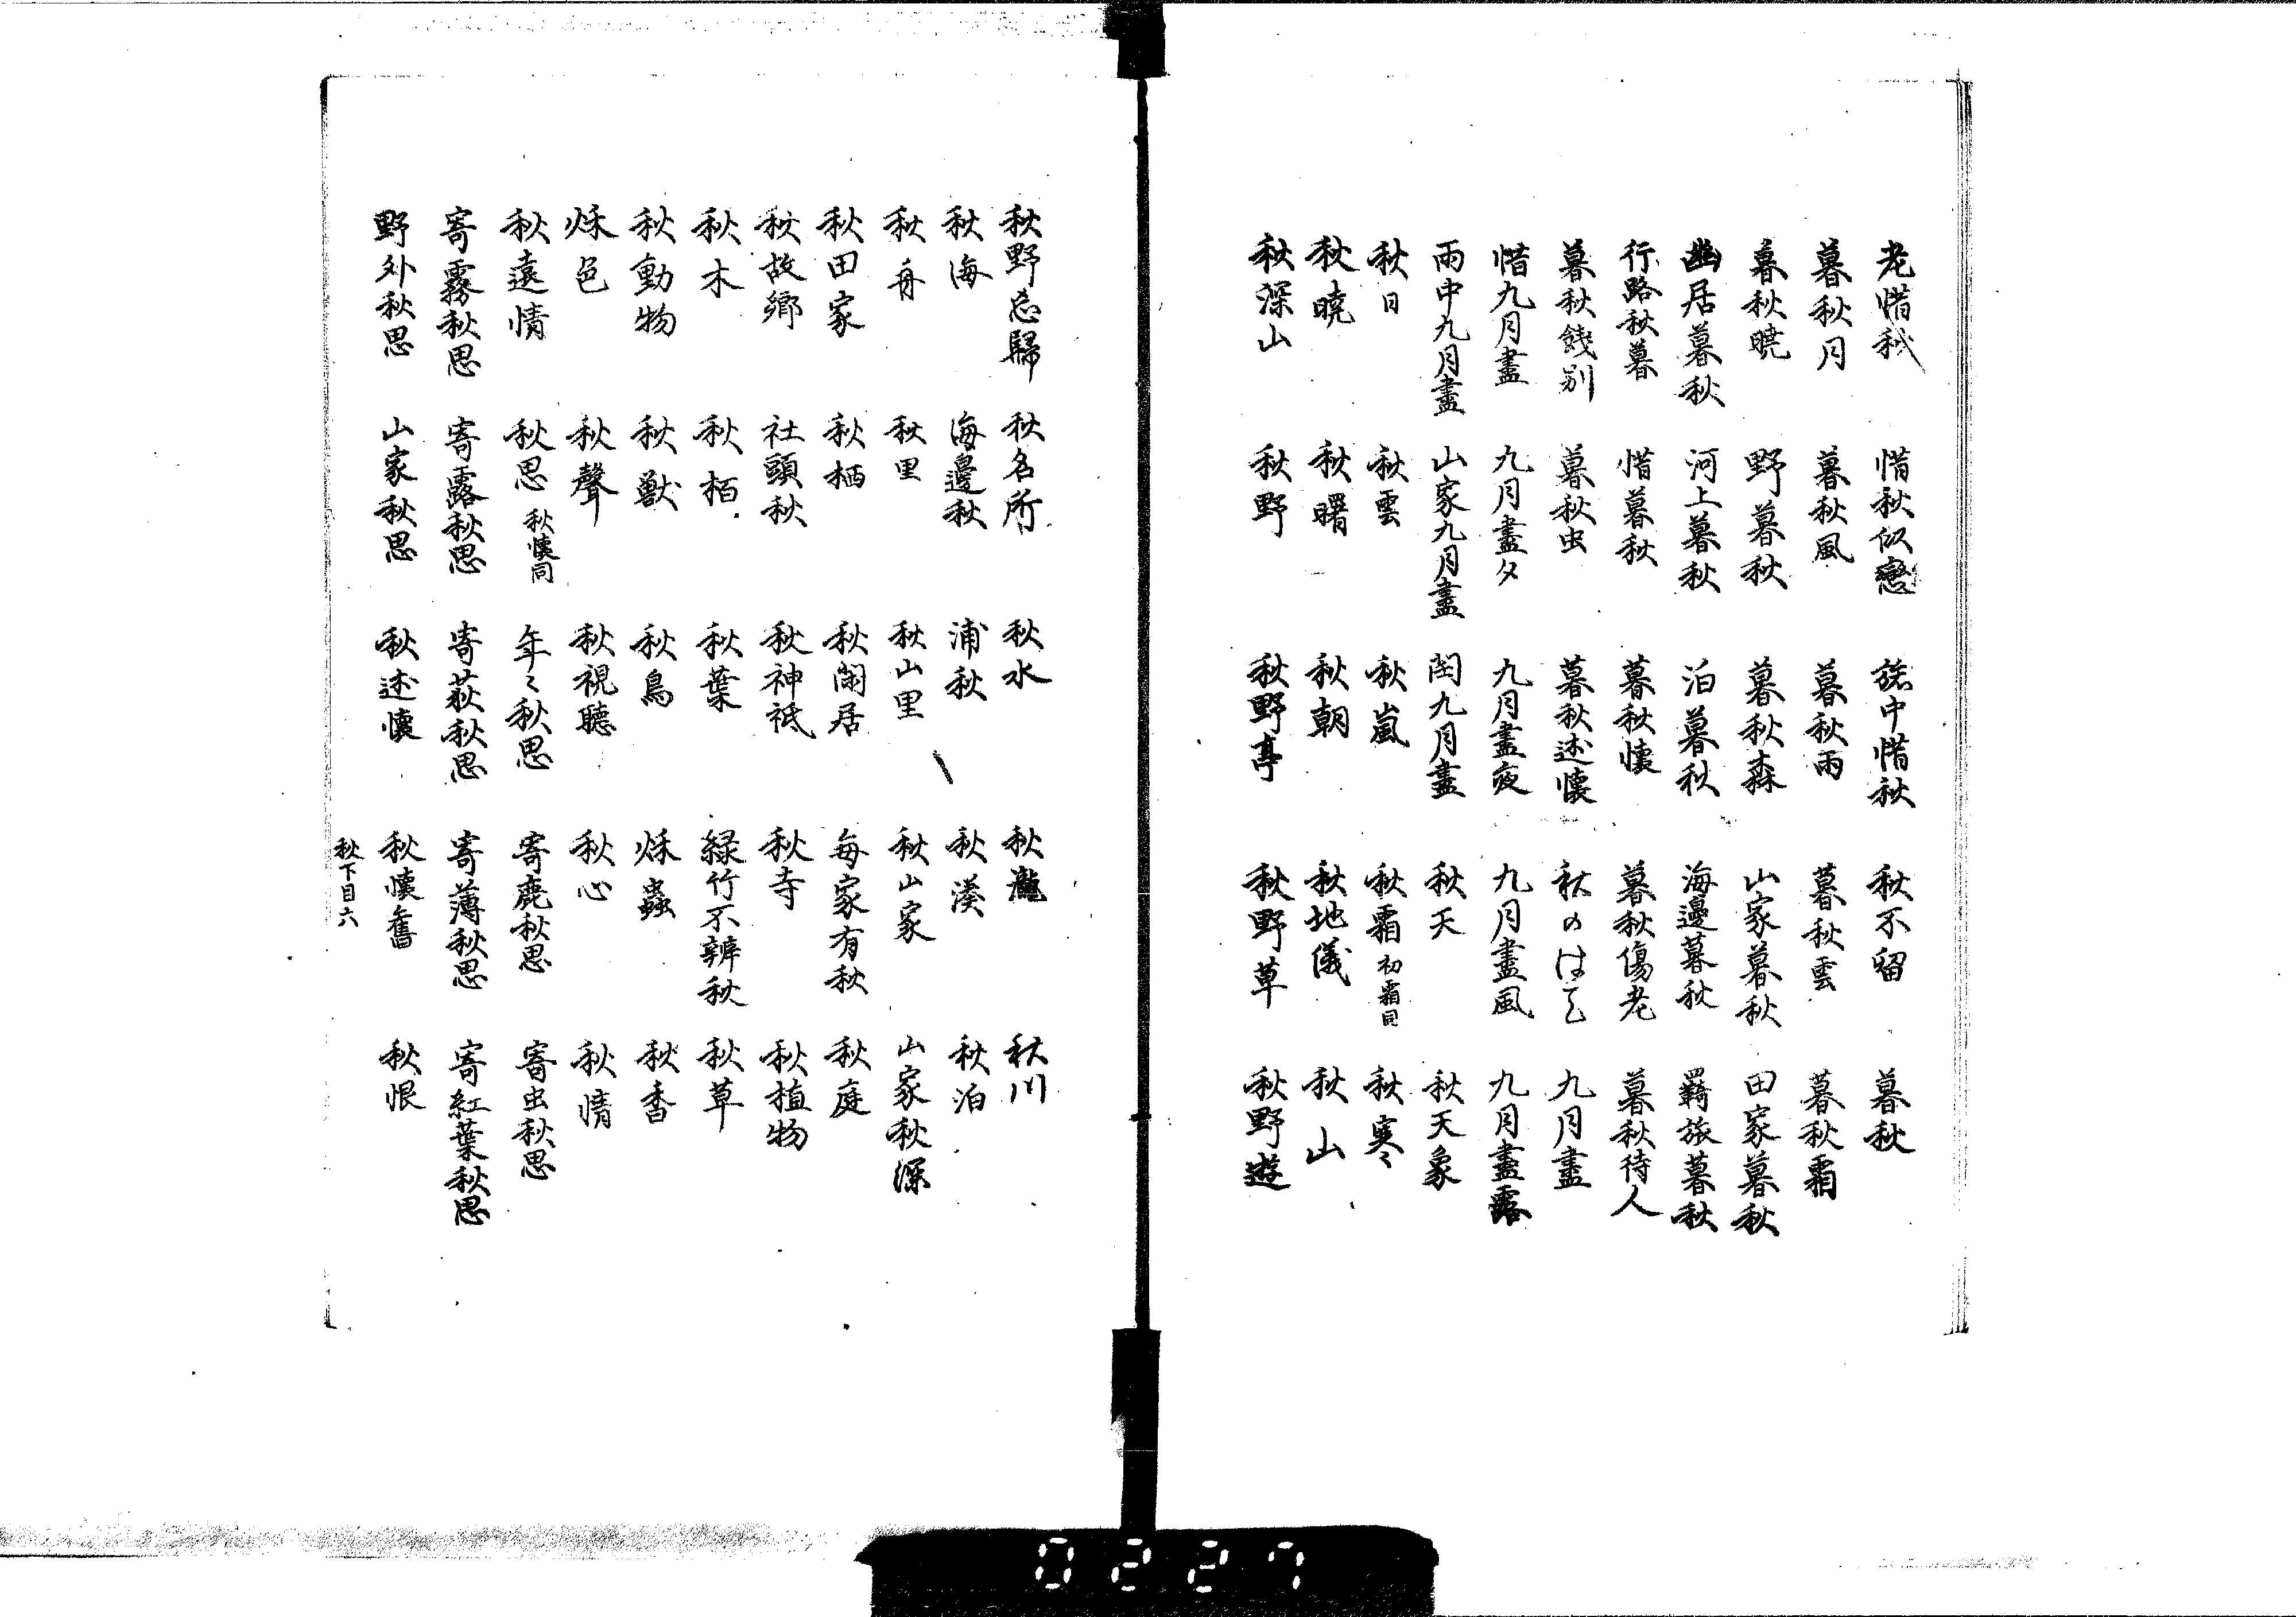 老惜秋 惜秋似戀 旅中惜秋 秋不留 暮秋
暮秋月 暮秋風 暮秋雨 暮秋雲 暮秋霜
暮秋暁 野暮秋 暮秋森 山家暮秋 田家暮秋
幽居暮秋 河上暮秋 泊暮秋 海邊暮秋 羇旅暮秋
行路秋暮 惜暮秋 暮秋懐 暮秋傷老 暮秋待人
暮秋餞別 暮秋虫 暮秋述懐 秋のはて 九月盡
惜九月盡 九月盡夕 九月盡夜 九月盡風 九月盡露
雨中九月盡 山家九月盡 閏九月盡 秋天 秋天象
秋日 秋雲 秋嵐 秋霜 初霜同 秋寒
秋暁 秋曙 秋朝 秋地儀 秋山
秋深山 秋野 秋野亭 秋野草 秋野遊
秋野忘歸 秋名所 秋水 秋瀧 秋川
秋海 海邊秋 浦秋 秋湊 秋泊
秋舟 秋里 秋山里 秋山家 山家秋深
秋田家 秋栖 秋閑居 毎家有秋 秋庭
秋故郷 社頭秋 秋神祇 秋寺 秋植物
秋木 秋栢 秋葉 緑竹不辨秋 秋草
秋動物 秋獣 秋鳥 秌蟲 秋香
秌色 秋聲 秋視聴 秋心 秋情
秋遠情 秋思 秋懐同 年〻秋思 寄鹿秋思 寄虫秋思
寄霧秋思 寄露秋思 寄荻秋思 寄薄秋思 寄紅葉秋思
野外秋思 山家秋思 秋述懐 秋懐舊 秋恨
秋下目六
0227